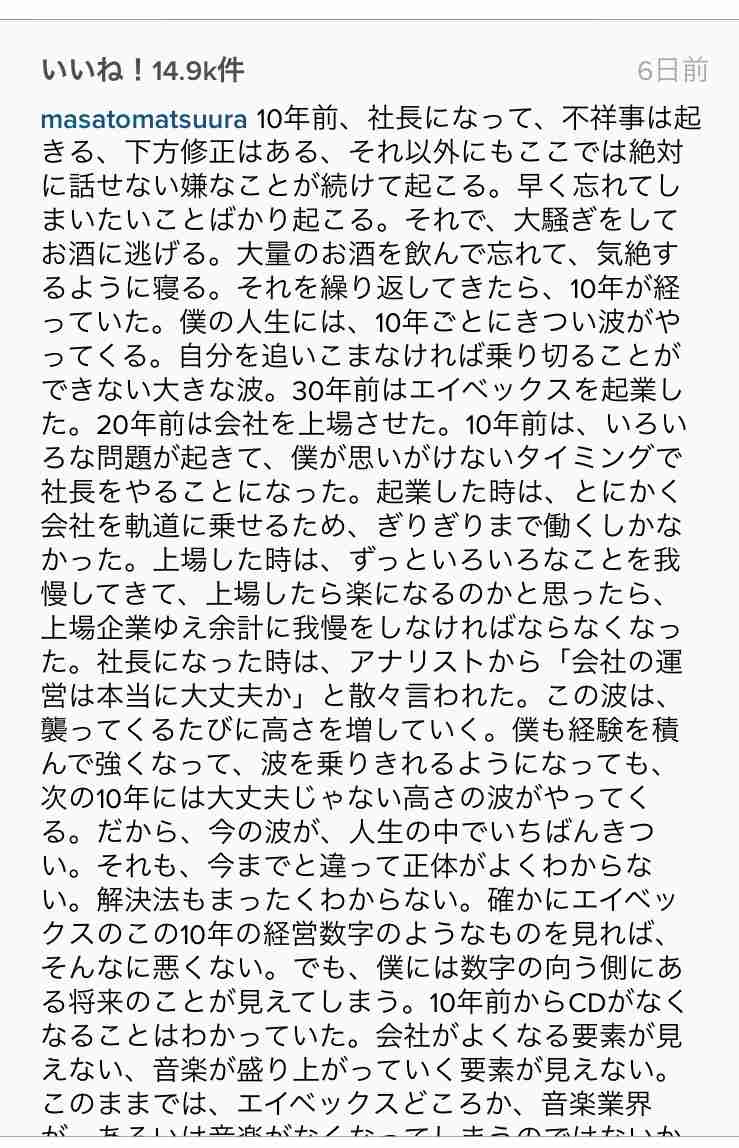 いいね！14.9k件
6日前
masatomatsuura 10年前、社長になって、不祥事は起
きる、下方修正はある、それ以外にもここでは絶対
に話せない嫌なことが続けて起こる。早く忘れてし
まいたいことばかり起こる。それで、大騒ぎをして
お酒に逃げる。大量のお酒を飲んで忘れて、気絶す
るように寝る。それを繰り返してきたら、10年が経
っていた。僕の人生には、10年ごとにきつい波がや
ってくる。自分を追いこまなければ乗り切ることが
できない大きな波。30年前はエイベックスを起業し
た。20年前は会社を上場させた。10年前は、いろい
ろな問題が起きて、僕が思いがけないタイミングで
社長をやることになった。起業した時は、とにかく
会社を軌道に乗せるため、ぎりぎりまで働くしかな
かった。上場した時は、ずっといろいろなことを我
慢してきて、上場したら楽になるのかと思ったら、
上場企業ゆえ余計に我慢をしなければならなくなっ
た。社長になった時は、アナリストから「会社の運
営は本当に大丈夫か」と散々言われた。この波は、
襲ってくるたびに高さを増していく。僕も経験を積
んで強くなって、波を乗りきれるようになっても、
次の10年には大丈夫じゃない高さの波がやってく
る。だから、今の波が、人生の中でいちばんきつ
い。それも、今までと違って正体がよくわからな
い。解決法もまったくわからない。確かにエイベッ
クスのこの10年の経営数字のようなものを見れば、
そんなに悪くない。でも、僕には数字の向う側にあ
る将来のことが見えてしまう。10年前からCDがなく
なることはわかっていた。会社がよくなる要素が見
えない、音楽が盛り上がっていく要素が見えない。
このままでは、エイベックスどころか、音楽業界
が、あるいは音楽がなくなってしまうのではないか